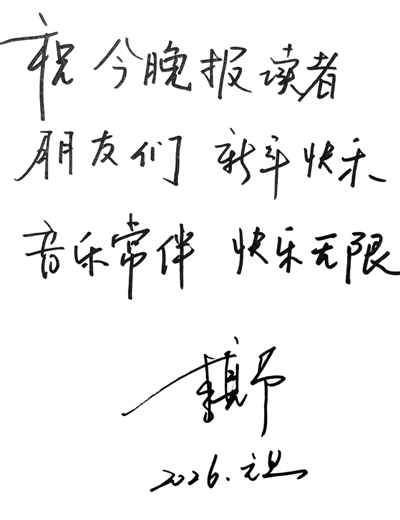 祝今晚报读者
朋友们 新年快乐
音乐常伴 快乐无限
2026.元旦